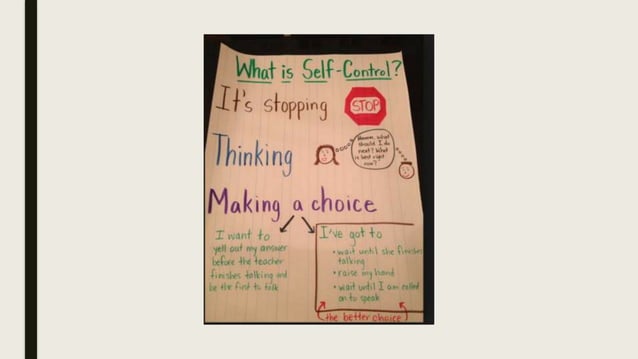 What is Self-Control?
It's stopping STOP
Thinking
Hmmm, what
should I do
next? What
is best right
now?
Making a choice
I want to
yell out my answer
before the teacher
finishes talking and
be the first to talk
I've got to
• wait until she finishes
talking
• raise my hand
• wait until I am called
on to speak
the better choice